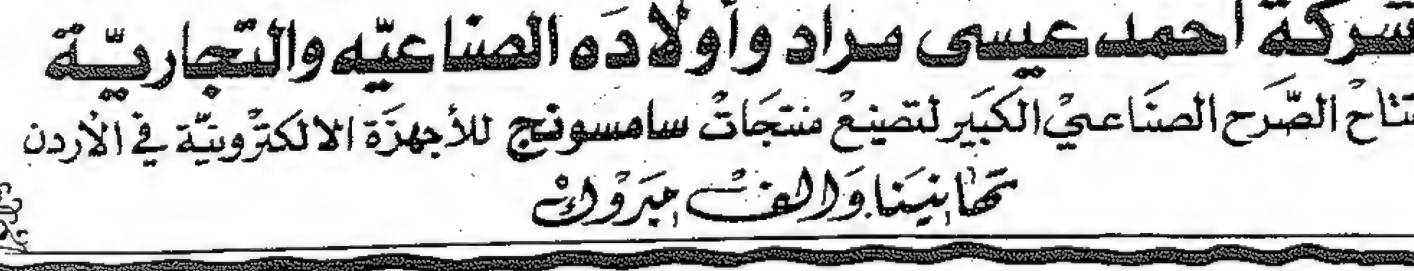 شركة أحمد عيسى مراد وأولاده الصناعيّه والتجاريّة
تتاح الصّرح الصناعيْ الكبير لتصنيعْ منتجاتْ سامسونج للأجهزة الالكترْونيّة في الأردن
تهانينا وَالفْ مبَرْوكْ